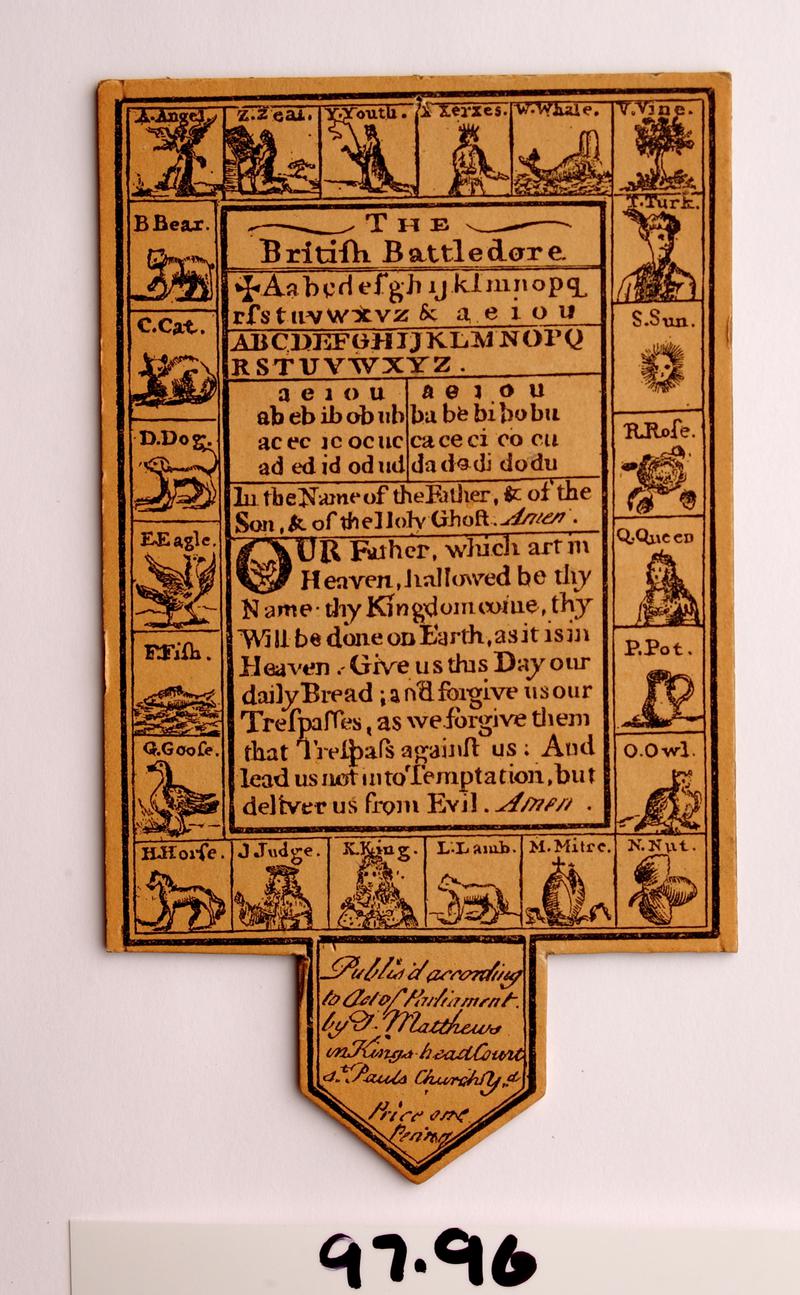 A.Angel.
Z.Zeal.
Y.Youth.
X Xerxes.
W.Whale.
V.Vine.
B Bear.
C.Cat.
D.Dog.
E.Eagle.
F.Fiſh.
G.Gooſe.
H.Horſe.
J Judge.
K.King.
L.Lamb.
M.Mitre.
N.Nut.
O.Owl.
P.Pot.
Q.Queen
R.Roſe.
S.Sun.
T.Turk.
THE
Britiſh Battledore
✠Aabcdefghijklmnopq
rſstuvwxyz & a e i o u
ABCDEFGHIJKLMNOPQ
RSTUVWXYZ.
a e i o u a e i o u
ab eb ib ob ub ba be bi bo bu
ac ec ic oc uc ca ce ci co cu
ad ed id od ud da de di do du
In the Name of the Father, & of the
Son, & of the Holy Ghoſt. Amen.
OUR Father, which art in
Heaven, hallowed be thy
Name. thy Kingdom come, thy
Will be done on Earth, as it is in
Heaven. Give us this Day our
daily Bread; and forgive us our
Treſpaſſes, as we forgive them
that Treſpaſs againſt us: And
lead us not into Temptation, but
deliver us from Evil. Amen.
Publis'd according
to Act of Parliament.
by Matthews
in Kings-head Court
St. Pauls Churchy.d
Price one
Penny
97.96